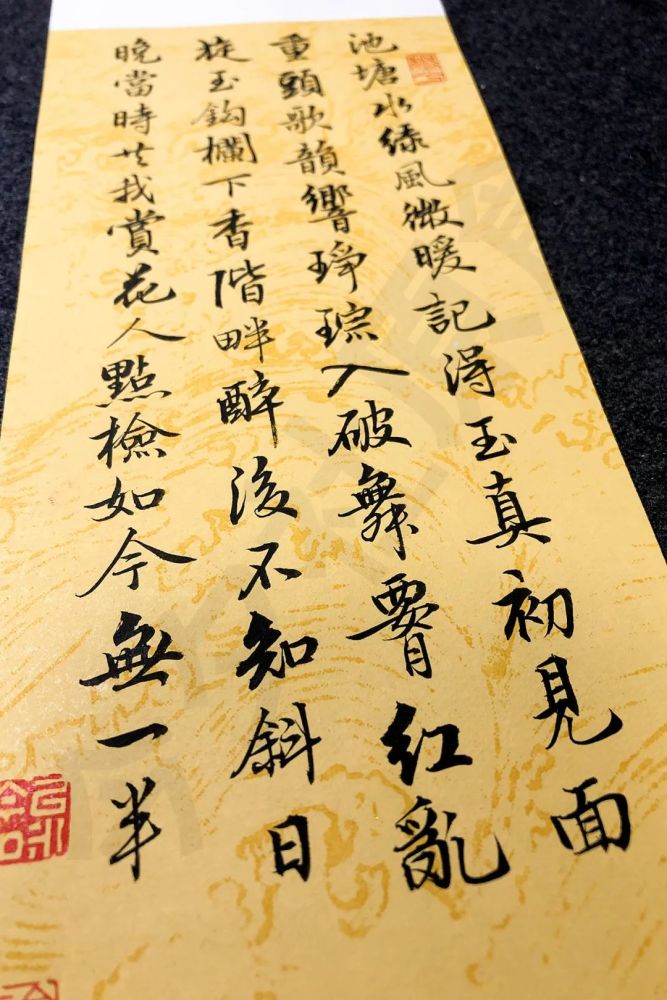 池塘水綠風微暖記得玉真初見面
重頭歌韻響琤琮入破舞腰紅亂
旋玉鈎欄下香階畔醉後不知斜日
晚當時共我賞花人點檢如今無一半